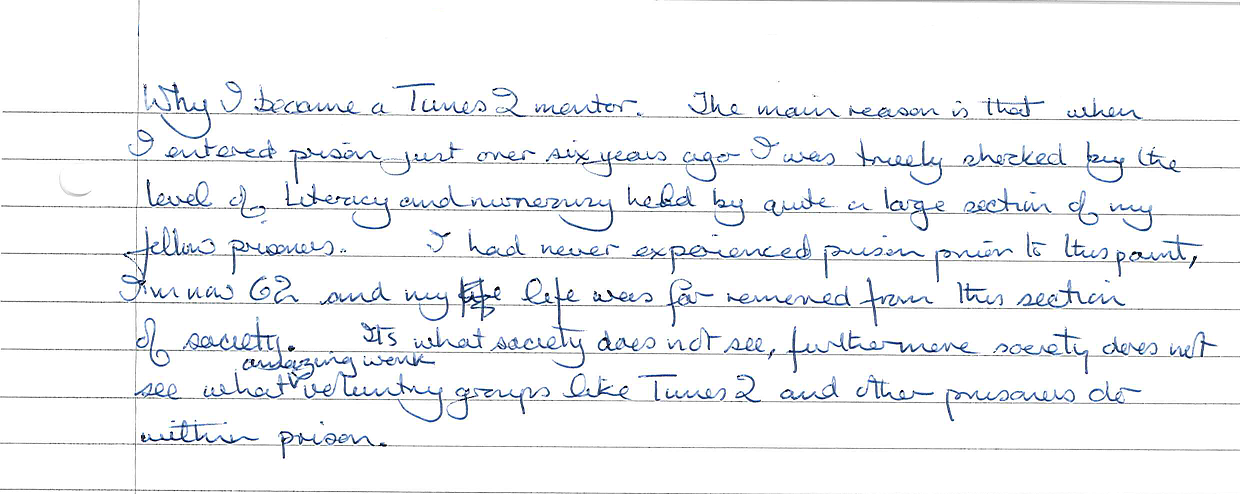 Why I became a Times 2 mentor. The main reason is that when
I entered prison just over six years ago I was truely shocked by the
level of Literacy and numeracy held by quite a large section of my
fellow prisoners. I had never experienced prison prior to this point,
I'm now 62 and my life life was far removed from this section
of society. Its what society does not see, furthermore society does not
amazing work
see what voluntry groups like Times 2 and other prisoners do
within prison.